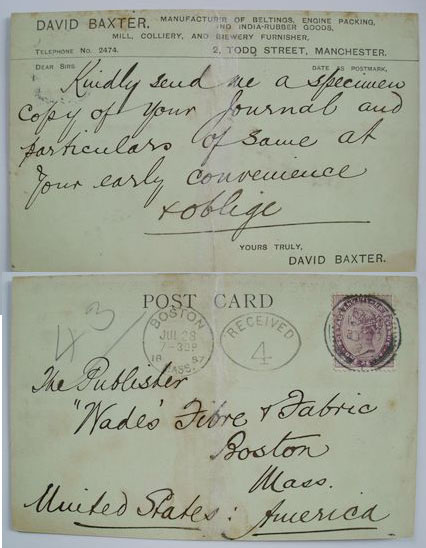 DAVID BAXTER.
MANUFACTURER OF BELTINGS, ENGINE PACKING,
AND INDIA-RUBBER GOODS,
MILL, COLLIERY, AND BREWERY FURNISHER,
TELEPHONE No. 2474.
2, TODD STREET, MANCHESTER.
DEAR SIRS
DATE AS POSTMARK,
Kindly send me a specimen
copy of your Journal and
particulars of same at
your early convenience
& oblige
YOURS TRULY,
DAVID BAXTER.
POST CARD
43
BOSTON
JUL 28
18 87
MASS.
RECEIVED
4
The Publisher
"Wade's Fibre & Fabric
Boston
Mass.
United States: America